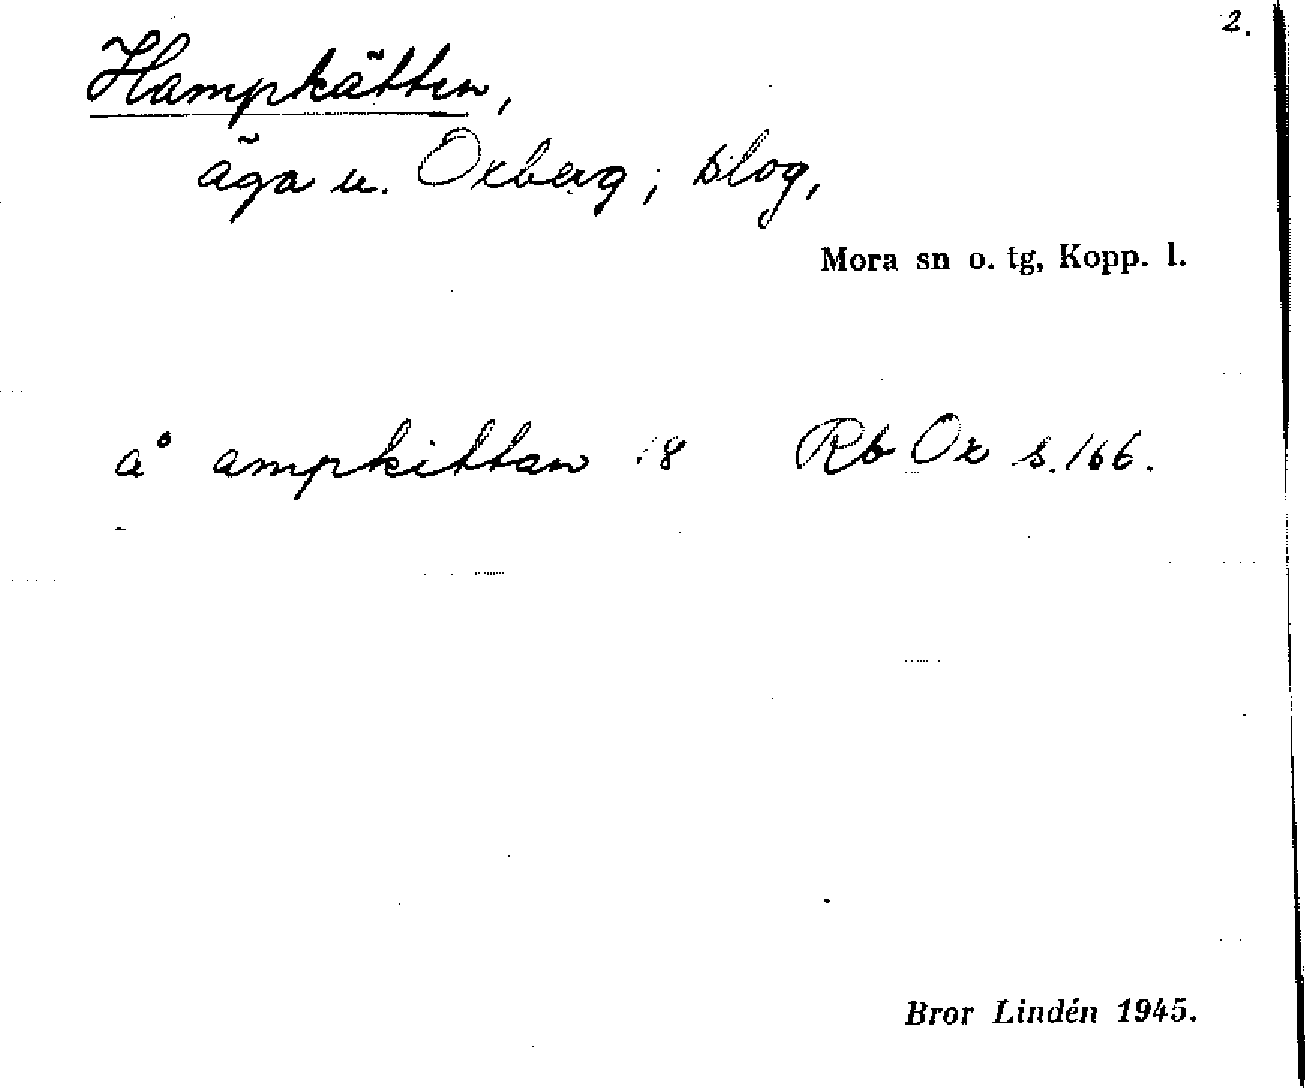 2.
Hampkätten,
äga u. Oxberg; slog,
Mora sn o. tg, Kopp. l.
å ampkittan 18 Rb Ox s. 166.
Bror Lindén 1945.